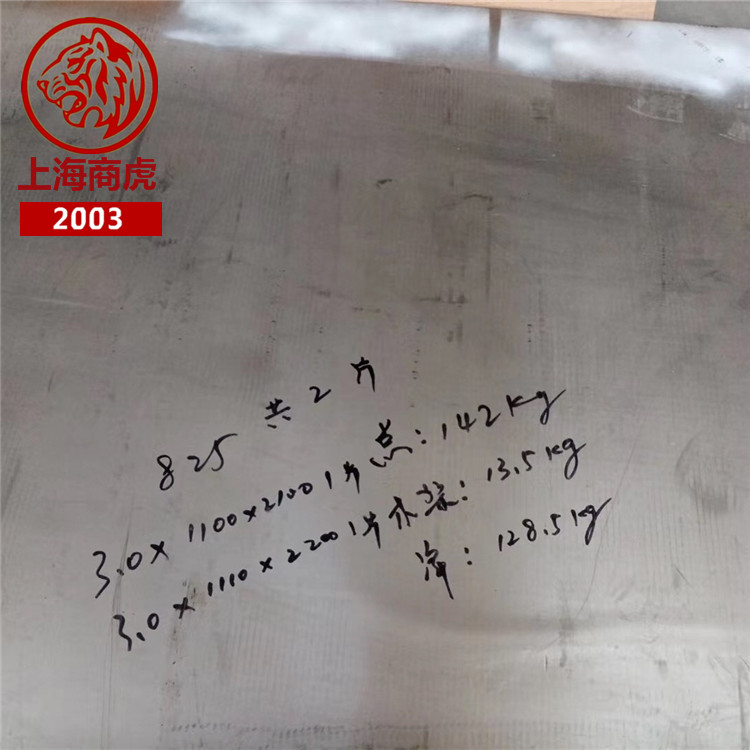 上海商虎
2003
825 共2片
3.0×1100×2100 1片 点:142kg
3.0×1110×2200 1片 木架:13.5kg
净:128.5kg